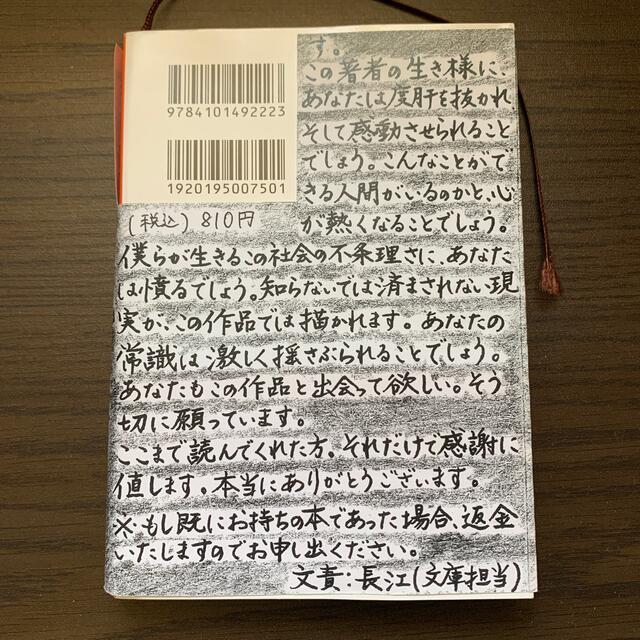 9784101492223
1920195007501
(税込) 810円
す。
この著者の生き様に、
あなたは度肝を抜かれ
そして感動させられること
でしょう。こんなことがで
きる人間がいるのかと、心
が熱くなることでしょう。
僕らが生きるこの社会の不条理さに、あなた
は憤るでしょう。知らないでは済まされない現
実が、この作品では描かれます。あなたの
常識は激しく揺さぶられることでしょう。
あなたもこの作品と出会って欲しい。そう
切に願っています。
ここまで読んでくれた方。それだけで感謝に
値します。本当にありがとうございます。
※もし既にお持ちの本であった場合、返金
いたしますのでお申し出ください。
文責：長江(文庫担当)